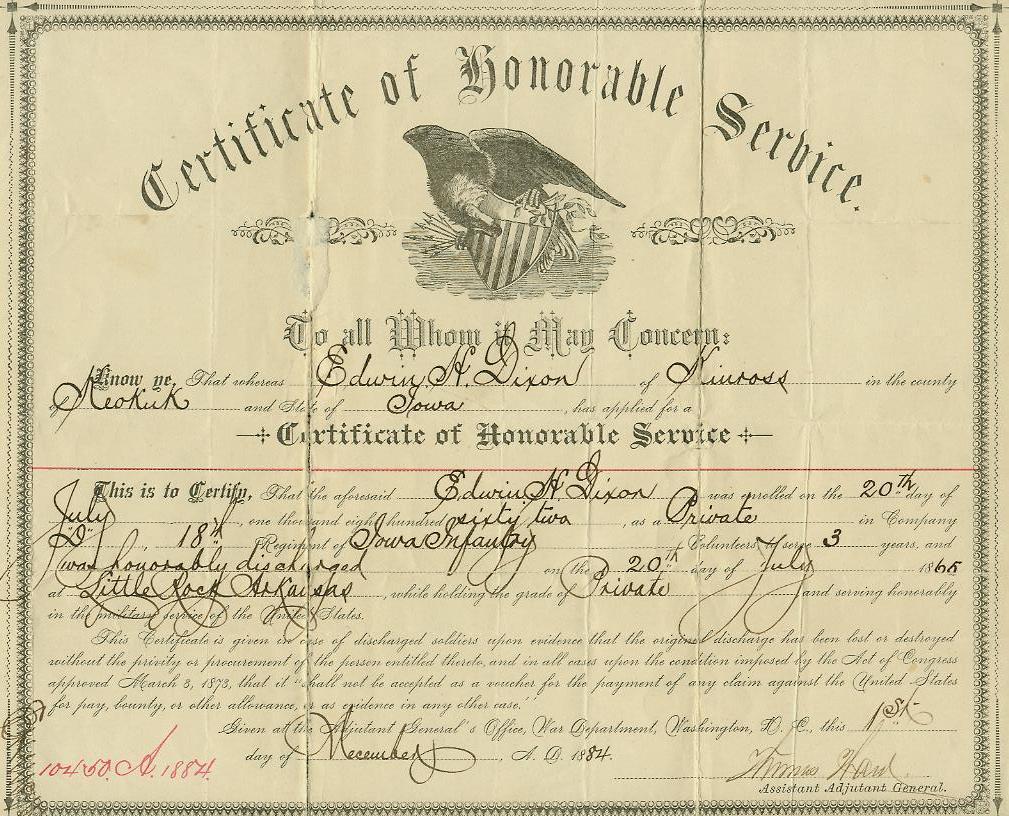 Certificate of Honorable Service.
To all Whom it May Concern:
Know ye, That whereas Edwin H. Dixon of Kinross in the county
of Keokuk and State of Iowa, has applied for a
Certificate of Honorable Service
This is to Certify, That the aforesaid Edwin H Dixon was enrolled on the 20th day of
July, one thousand eight hundred sixty two, as a Private in Company
"D", 18th Regiment of Iowa Infantry Volunteers, to serve 3 years, and
was honorably discharged on the 20th day of July 1865
at Little Rock Arkansas, while holding the grade of Private and serving honorably
in the military service of the United States.
This Certificate is given in case of discharged soldiers upon evidence that the original discharge has been lost or destroyed
without the privity or procurement of the person entitled thereto, and in all cases upon the condition imposed by the Act of Congress
approved March 3, 1873, that it "shall not be accepted as a voucher for the payment of any claim against the United States
for pay, bounty, or other allowance, or as evidence in any other case."
Given at the Adjutant General's Office, War Department, Washington, D. C., this 1st
day of December, A. D. 1884.
10450. A. 1884.
Thomas Ward.
Assistant Adjutant General.